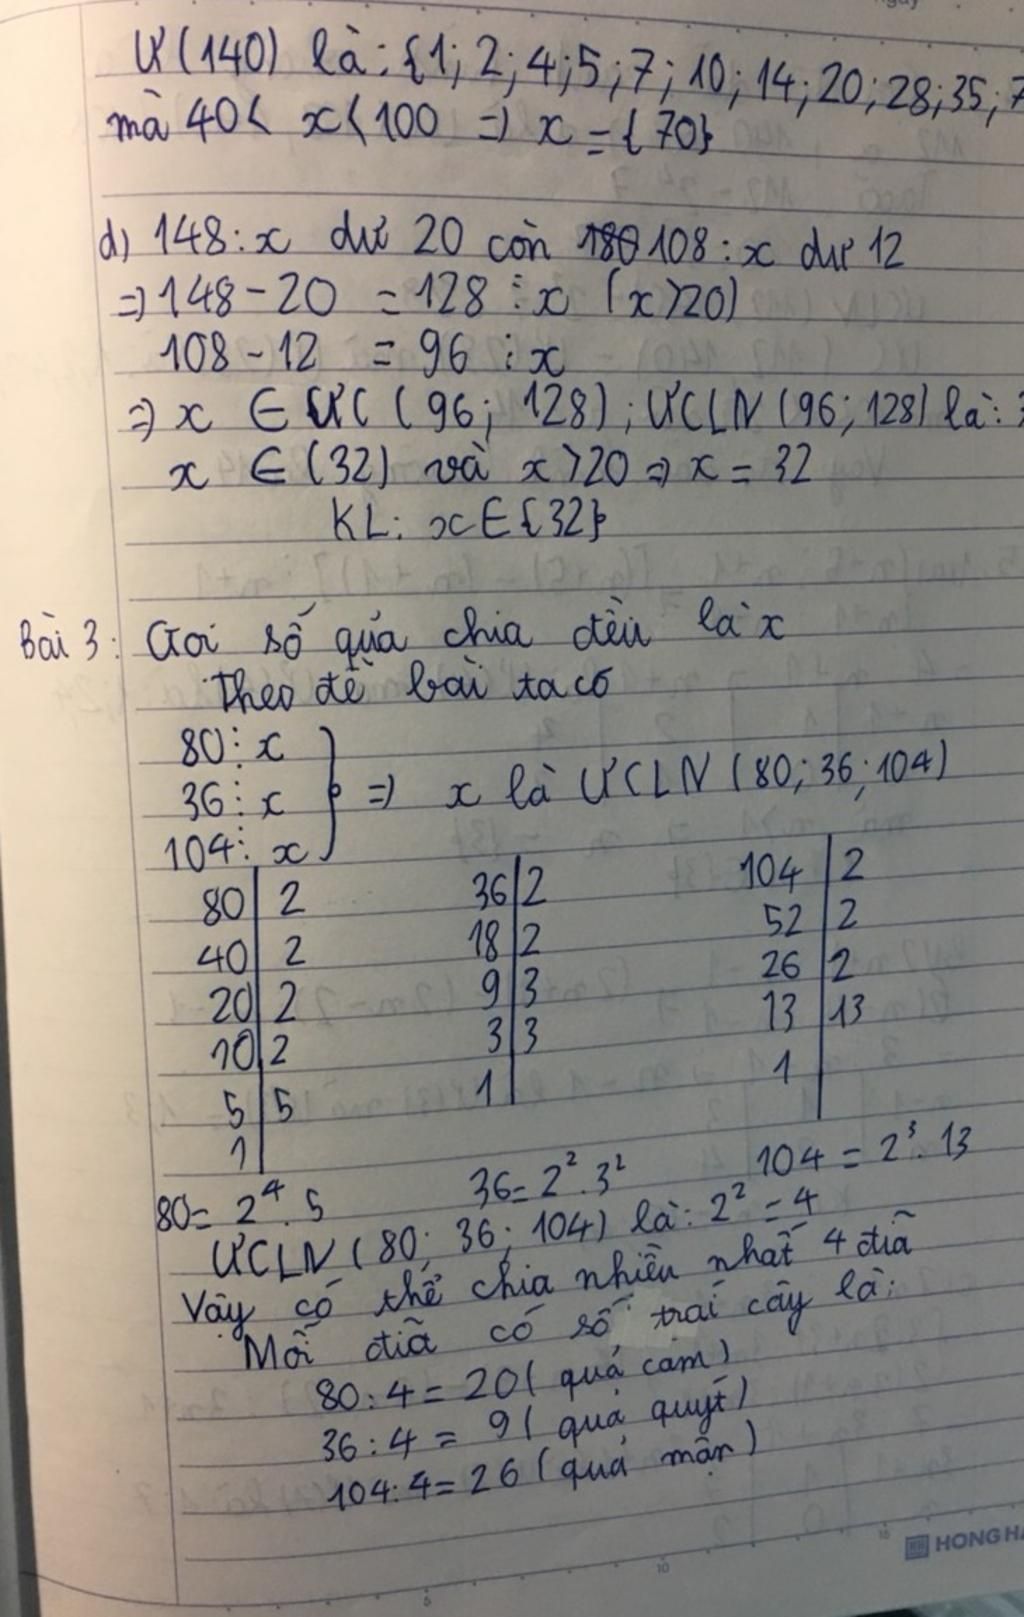 Ư(140) là: {1; 2; 4; 5; 7; 10; 14; 20; 28; 35; 7
mà 40 < x < 100 => x = {70}
d) 148 : x dư 20 còn 108 : x dư 12
=> 148 - 20 = 128 ⋮ x (x > 20)
108 - 12 = 96 ⋮ x
=> x ∈ ƯC (96; 128) ; ƯCLN (96; 128) là:
x ∈ (32) và x > 20 => x = 32
KL: x ∈ {32}
Bài 3: Gọi số quả chia đều là x
Theo đề bài ta có
80 ⋮ x
36 ⋮ x } => x là ƯCLN (80; 36; 104)
104 ⋮ x
80 | 2 36 | 2 104 | 2
40 | 2 18 | 2 52 | 2
20 | 2 9 | 3 26 | 2
10 | 2 3 | 3 13 | 13
5 | 5 1 | 1 |
1 |
80 = 2⁴ . 5 36 = 2² . 3² 104 = 2³ . 13
ƯCLN (80; 36; 104) là: 2² = 4
Vậy có thể chia nhiều nhất 4 đĩa
Mỗi đĩa có số trái cây là:
80 : 4 = 20 (quả cam)
36 : 4 = 9 (quả quýt)
104 : 4 = 26 (quả mận)
5 10 15
HONG HA